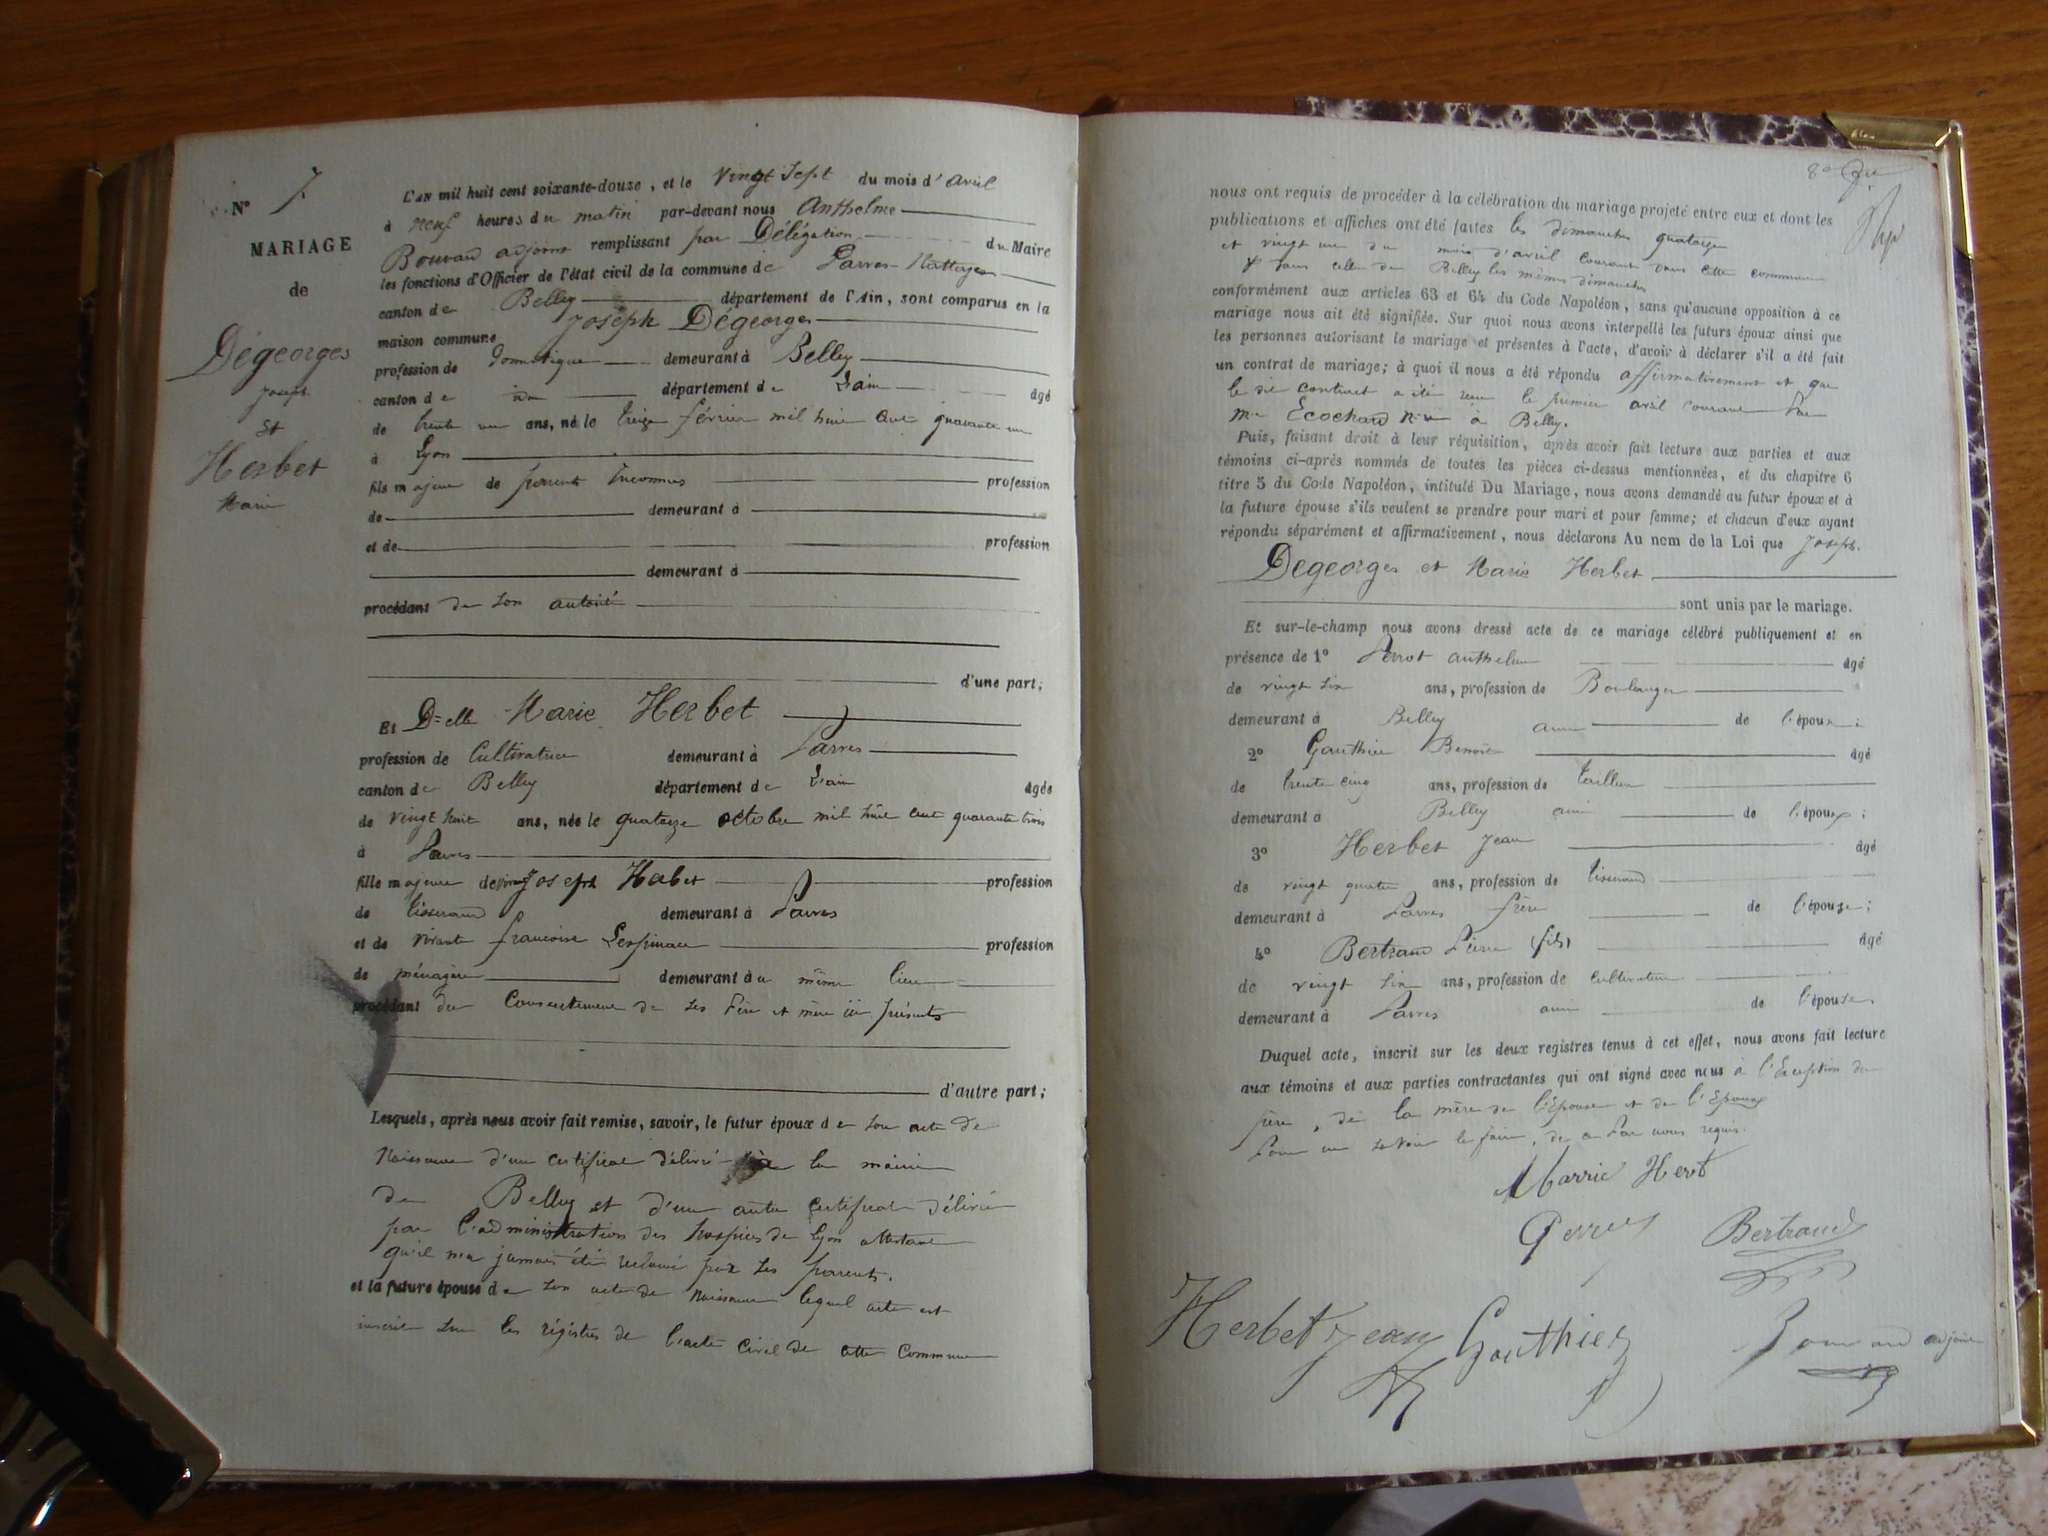 N° 7
MARIAGE
de
Degeorges
Joseph
et
Herbet
Marie
L'AN mil huit cent soixante-douze, et le vingt sept du mois d'avril
à neuf heures du matin par-devant nous Anthelme
Bouvard adjoint remplissant par Délégation du Maire
les fonctions d'Officier de l'état civil de la commune de Parves
canton de Belley département de l'Ain, sont comparus en la
maison commune Joseph Dégeorges
profession de domestique demeurant à Belley
canton de département de L'ain âgé
de trente un ans, né le treize février mil huit cent quarante un
à Lyon
fils majeur de parents inconnus profession
de demeurant à
et de profession
demeurant à
procédant de son autorité
d'une part;
Et Delle Marie Herbet
profession de Cultivatrice demeurant à Parves
canton de Belley département de L'ain âgée
de vingt huit ans, née le quatorze octobre mil huit cent quarante trois
à Parves
fille majeure de Joseph Habet profession
de tisserand demeurant à Parves
et de vivante francoise Lespinace profession
de ménagère demeurant au même lieu
procédant du Consentement de ses Père et mère ici présents
d'autre part;
Lesquels, après nous avoir fait remise, savoir, le futur époux de son acte de
Naissance d'un certificat délivré la mairie
de Belley et d'un autre certificat délivré
par l'administration des hospices de Lyon attestant
qu'il n'a jamais été réclamé par ses parents.
et la future épouse de son acte de Naissance lequel acte est
inscrit sur les régistres de l'acte civil de cette commune
nous ont requis de procéder à la célébration du mariage projeté entre eux et dont les
publications et affiches ont été faites les dimanches quatorze
et vingt un du mois d'avril courant dans cette commune
& dans celle de Belley les mêmes dimanches
conformément aux articles 63 et 64 du Code Napoléon, sans qu'aucune opposition à ce
mariage nous ait été signifiée. Sur quoi nous avons interpellé les futurs époux ainsi que
les personnes autorisant le mariage et présentes à l'acte, d'avoir à déclarer s'il a été fait
un contrat de mariage; à quoi il nous a été répondu affirmativement et que
le dit contrat a été reçu le premier avril courant Par
Me Ecochard Nre à Belley.
Puis, faisant droit à leur réquisition, après avoir fait lecture aux parties et aux
témoins ci-après nommés de toutes les pièces ci-dessus mentionnées, et du chapitre 6
titre 5 du Code Napoléon, intitulé Du Mariage, nous avons demandé au futur époux et à
la future épouse s'ils veulent se prendre pour mari et pour femme; et chacun d'eux ayant
répondu séparément et affirmativement, nous déclarons Au nom de la Loi que Joseph
Degeorges et Marie Herbet
sont unis par le mariage.
Et sur-le-champ nous avons dressé acte de ce mariage célébré publiquement et en
présence de 1° Perrot anthelme âgé
de vingt six ans, profession de Boulanger
demeurant à Belley ami de l'époux;
2° Gauthier Benoît âgé
de trente cinq ans, profession de tailleur
demeurant à Belley ami de l'époux;
3° Herbet Jean âgé
de vingt quatre ans, profession de tisserand
demeurant à Parves frère de l'épouse;
4° Bertrand Pierre (fils) âgé
de vingt six ans, profession de cultivateur
demeurant à Parves ami de l'épouse.
Duquel acte, inscrit sur les deux registres tenus à cet effet, nous avons fait lecture
aux témoins et aux parties contractantes qui ont signé avec nous à l'Exception du
père, de la mère de l'épouse et de l'Epoux
Pour ne savoir le faire, de ce Par nous requis.
Marrie Herbt
Bertrand
Herbet jean Gauthier
Bouvard adjoint